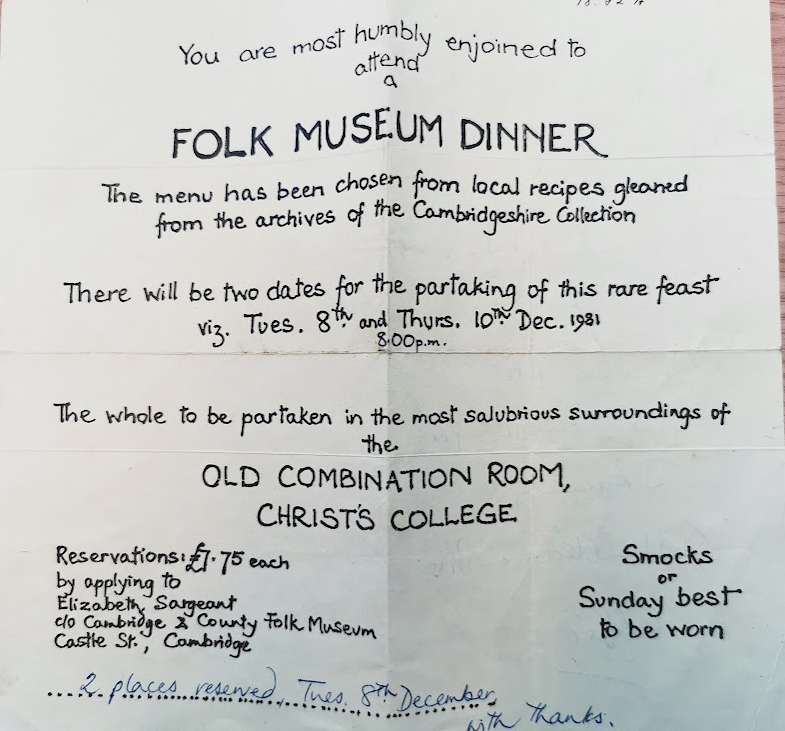 You are most humbly enjoined to
attend
a
FOLK MUSEUM DINNER
The menu has been chosen from local recipes gleaned
from the archives of the Cambridgeshire Collection
There will be two dates for the partaking of this rare feast
viz. Tues. 8th. and Thurs. 10th. Dec. 1981
8.00p.m.
The whole to be partaken in the most salubrious surroundings of
the
OLD COMBINATION ROOM,
CHRIST'S COLLEGE
Reservations: £7.75 each
by applying to
Elizabeth Sargeant
c/o Cambridge & County Folk Museum
Castle St., Cambridge
Smocks
or
Sunday best
to be worn
.... 2 places reserved, Tues. 8th December,
with thanks.